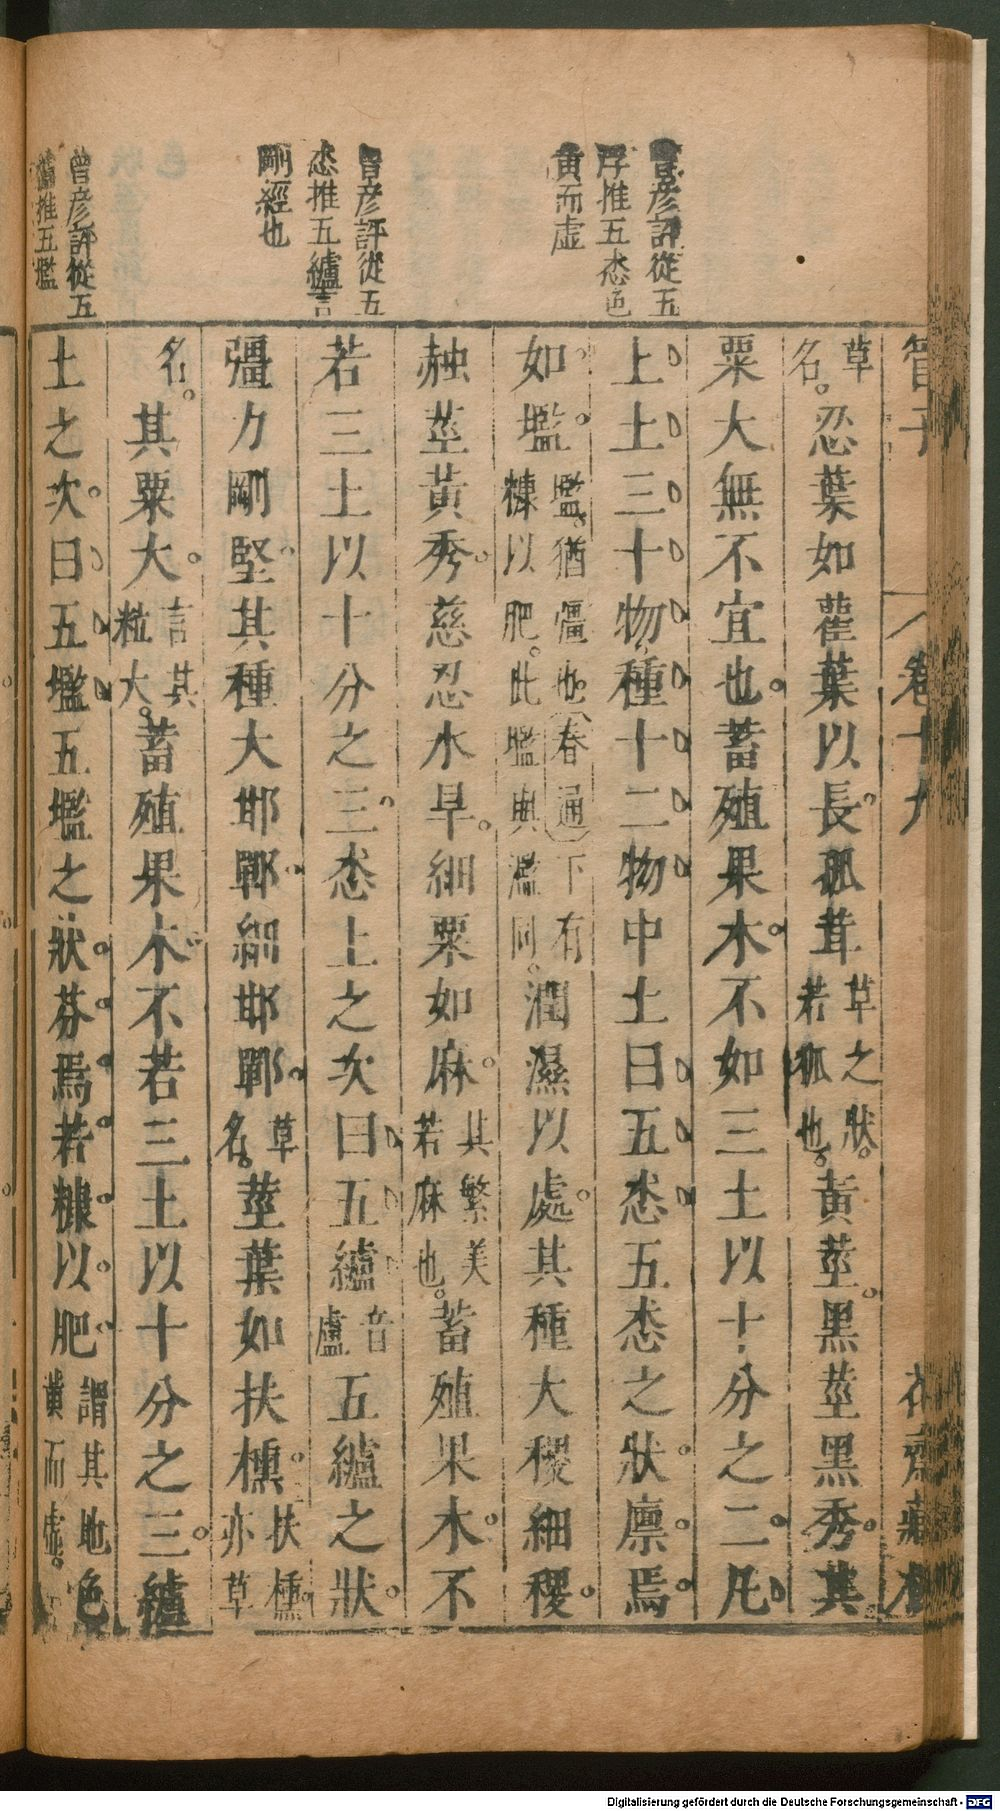 管子
卷十九
花齋藏板
曾彥評從五
浮推五怸色
黃而虛
曾彥評從五
怸推五纑言
剛經也
曾彥評從五
纑推五壏
草名。忍葉如雚葉以長。狐茸草之狀若狐也。黃莖。黑莖黑秀。其
粟大無不宜也。蓄殖果木。不如三土以十分之二。凡
上土三十物種十二物中土曰五怸五怸之狀。廩焉。
如壏。壏猶彊也(春通)下有糠以肥。此壏與濫同。潤濕以處。其種大稷細稷。
赨莖黃秀。慈忍水旱。細粟如麻。其繁美若麻也。蓄殖果木。不
若三土以十分之三。怸土之次曰五纑音盧五纑之狀。
彊力剛堅。其種大邯鄲。細邯鄲。草名。莖葉如扶櫄。扶櫄亦草
名。其粟大。言其粒大。蓄殖果木。不若三土以十分之三。纑
土之次。曰五壏五壏之狀。芬焉。若糠。以肥。謂其地色黃而虛。
Digitalisierung gefördert durch die Deutsche Forschungsgemeinschaft - DFG